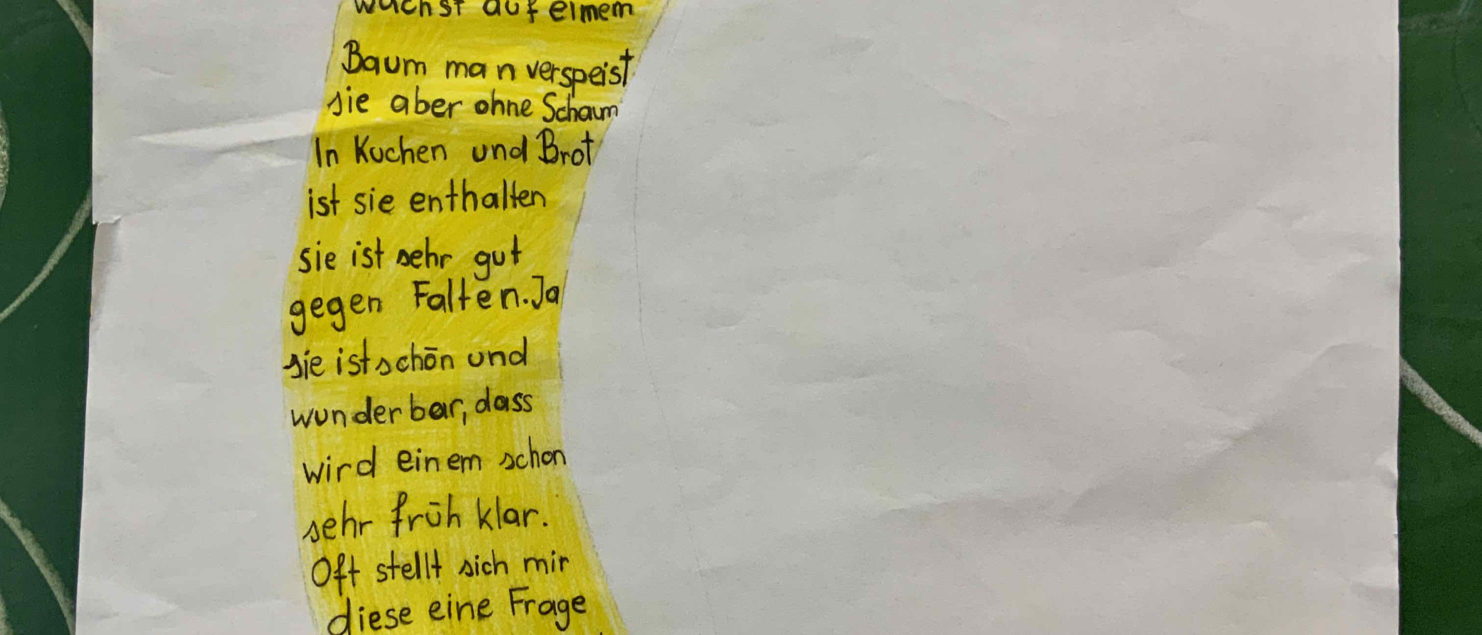 wächst auf einem
Baum man verspeist
sie aber ohne Schaum
In Kuchen und Brot
ist sie enthalten
sie ist sehr gut
gegen Falten. Ja
sie ist schön und
wunderbar, dass
wird einem schon
sehr früh klar.
Oft stellt sich mir
diese eine Frage